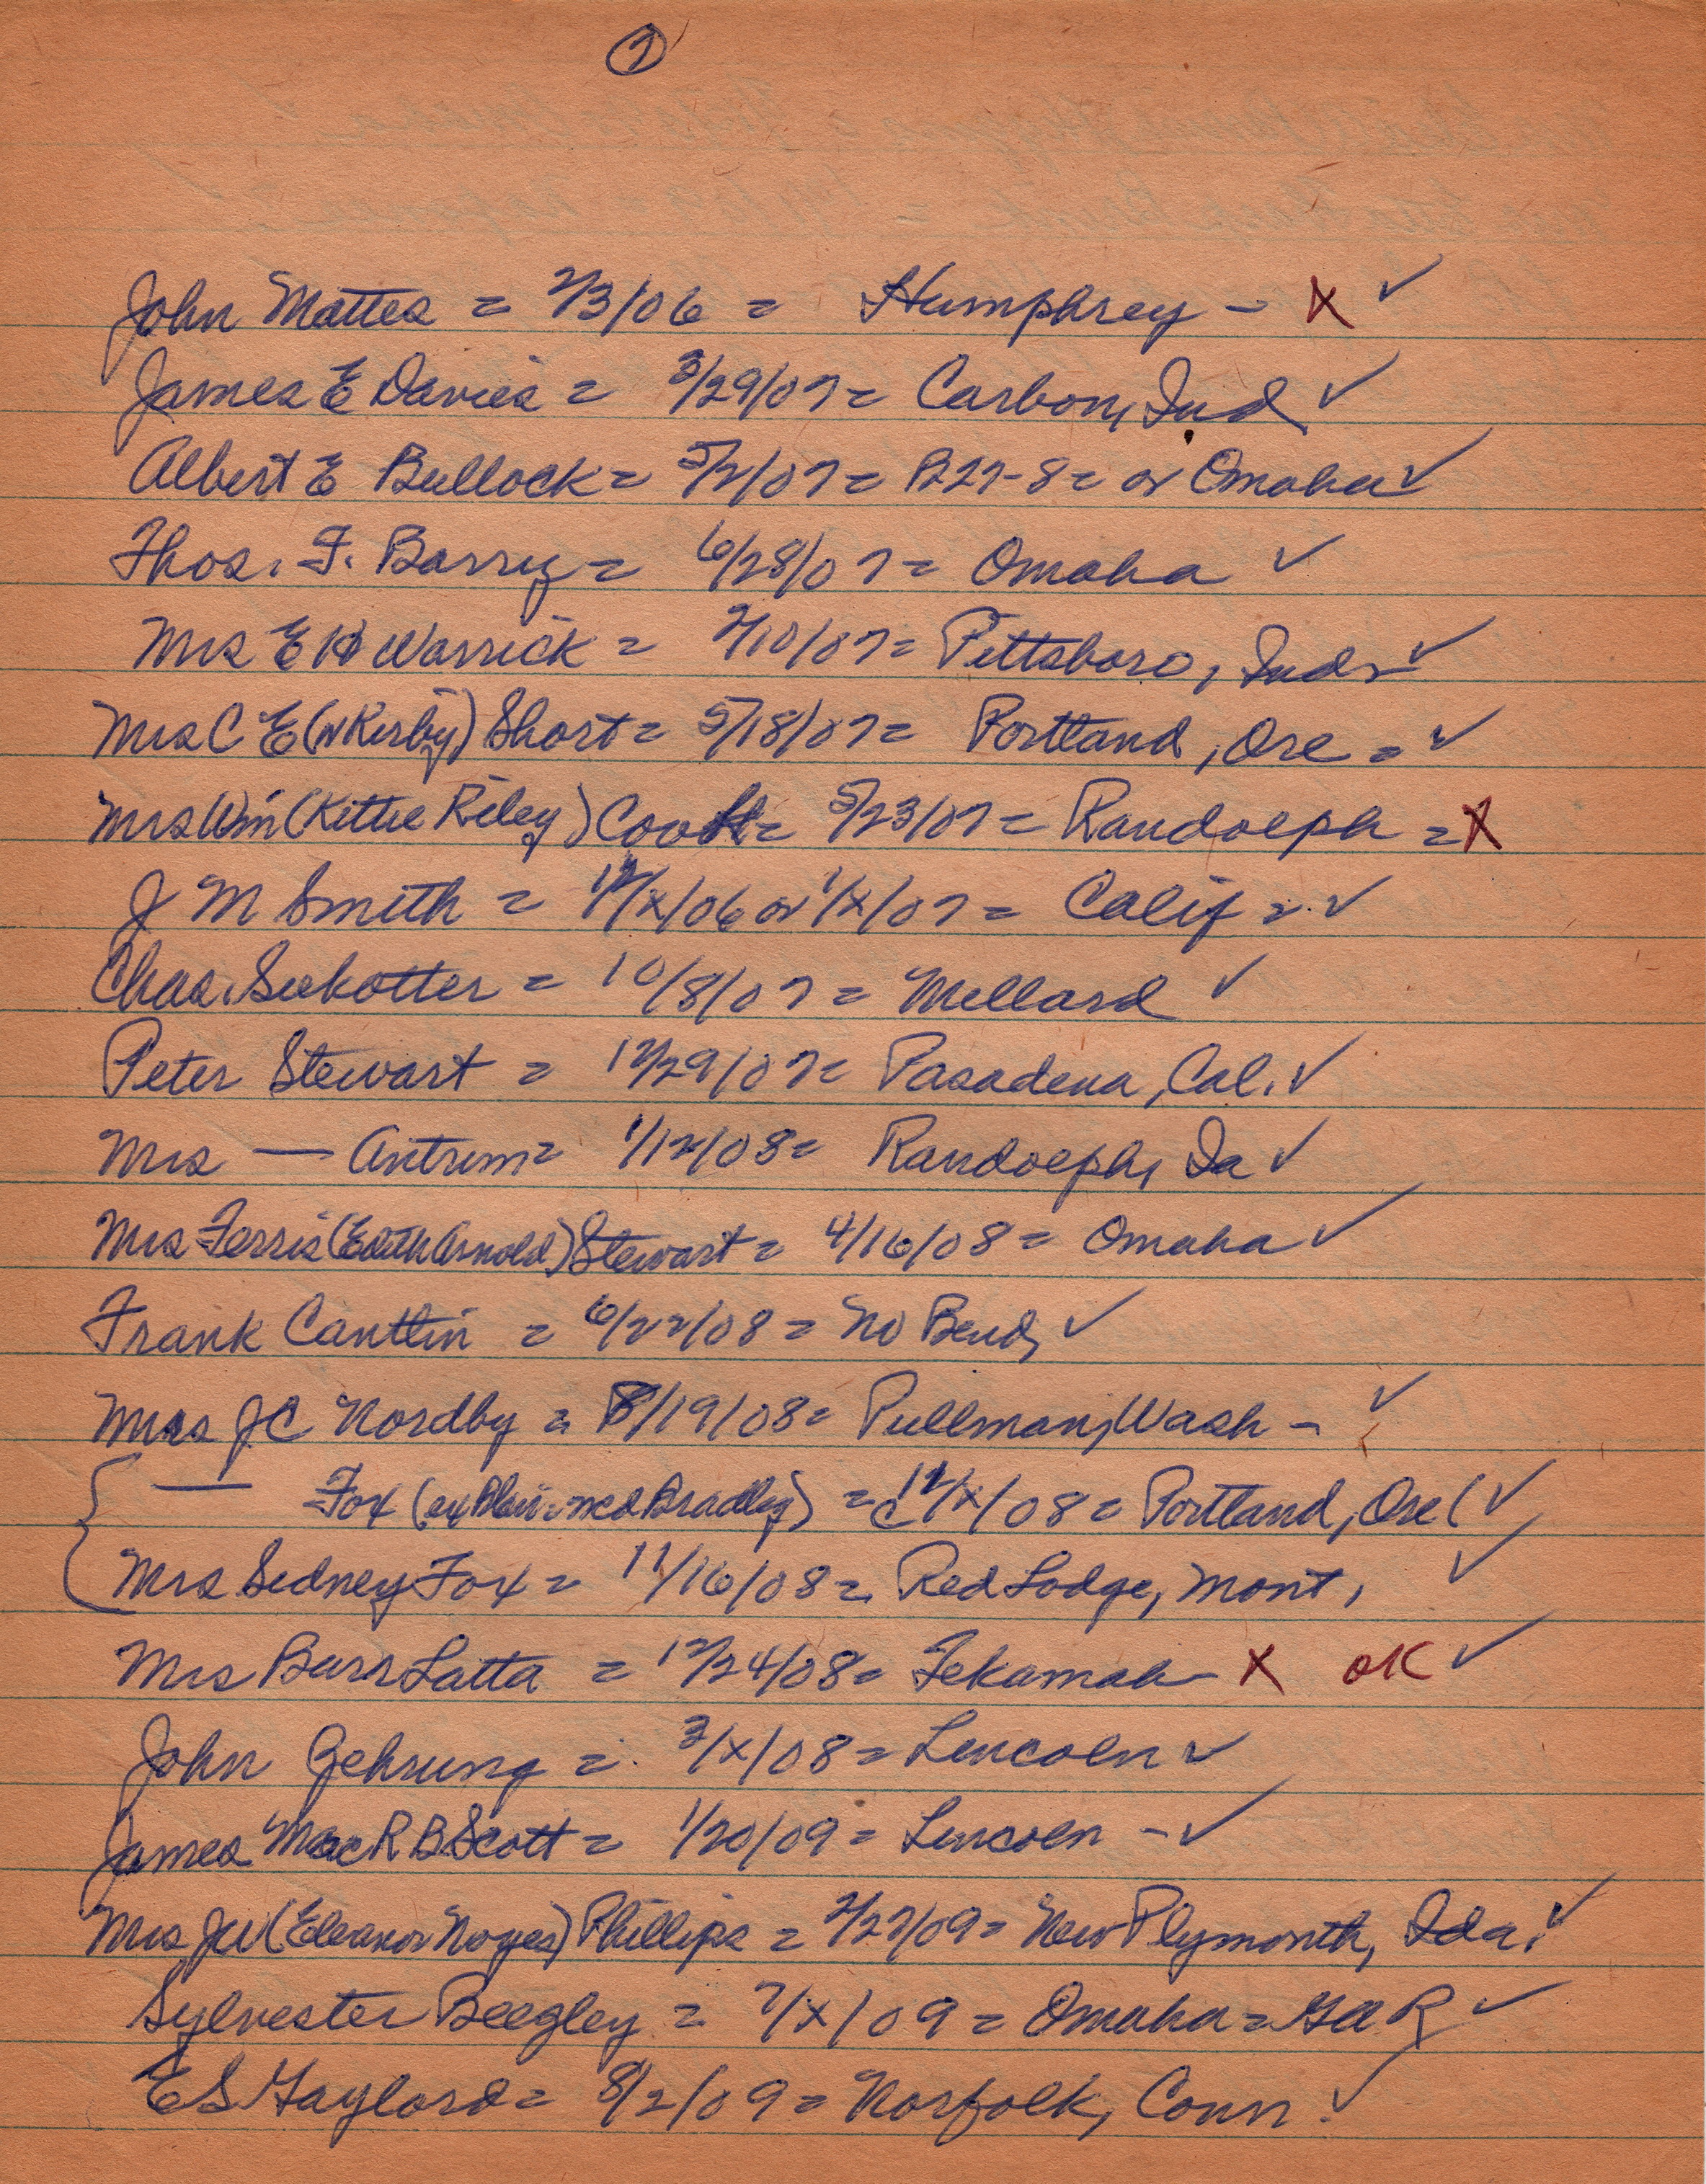 7
John Mattes = 2/3/06 = Humphrey - X ✓
James E Davies = 3/29/07 = Carbon, Ind ✓
Albert E Bullock = 5/2/07 = B27-8 = or Omaha ✓
Thos. F. Barry = 6/28/07 = Omaha ✓
Mrs E H Warrick = 2/10/07 = Pittsboro, Ind ✓
Mrs C E (N Kirby) Short = 5/18/07 = Portland, Ore = ✓
Mrs Wm (Kittie Riley) Cook = 5/23/07 = Randolph = X
J M Smith = 12/X/06 or 1/X/07 = Calif = ✓
Chas. Seekotter = 10/8/07 = Millard ✓
Peter Stewart = 12/29/07 = Pasadena, Cal. ✓
Mrs — Antrim = 1/12/08 = Randolph, Ia ✓
Mrs Ferris (Edith Arnold) Stewart = 4/16/08 = Omaha ✓
Frank Cantlin = 6/22/08 = No Bend, ✓
Mrs J C Nordby = 8/19/08 = Pullman, Wash - ✓
— Fox (ex Blair = McD Bradley) = c 12/X/08 = Portland, Ore ( ✓
Mrs Sidney Fox = 11/16/08 = Red Lodge, Mont, ✓
Mrs Burr Latta = 12/24/08 = Tekamah - X OK ✓
John Gehrung = 3/X/08 = Lincoln ✓
James Mac R B Scott = 1/20/09 = Lincoln - ✓
Mrs J W (Eleanor Noyes) Phillips = 2/27/09 = New Plymouth, Ida. ✓
Sylvester Beegley = 7/X/09 = Omaha = GAR ✓
E S Gaylord = 8/2/09 = Norfolk, Conn. ✓